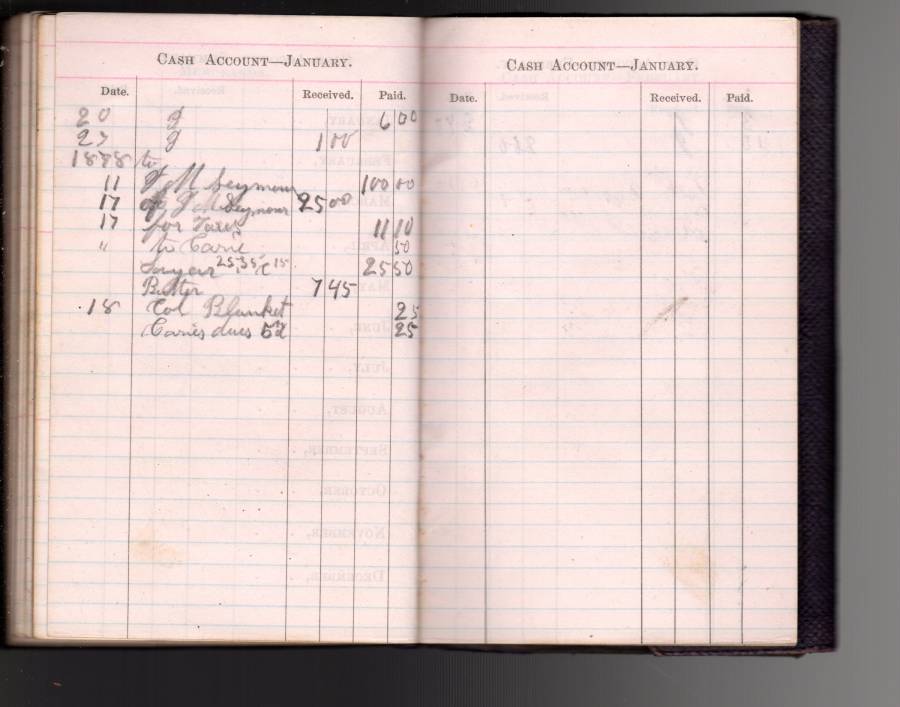 CASH ACCOUNT—JANUARY.
Date. Received. Paid.
20 J 6 00
27 J 1 00
1888 to
11 J M Seymour 100 00
17 of J M Seymour 25 00
17 for Taxes 11 10
" to Carrie 50
25 50
Butter 7 45
18 Col Blunket 25
Carries dues 25
CASH ACCOUNT—JANUARY.
Date. Received. Paid.